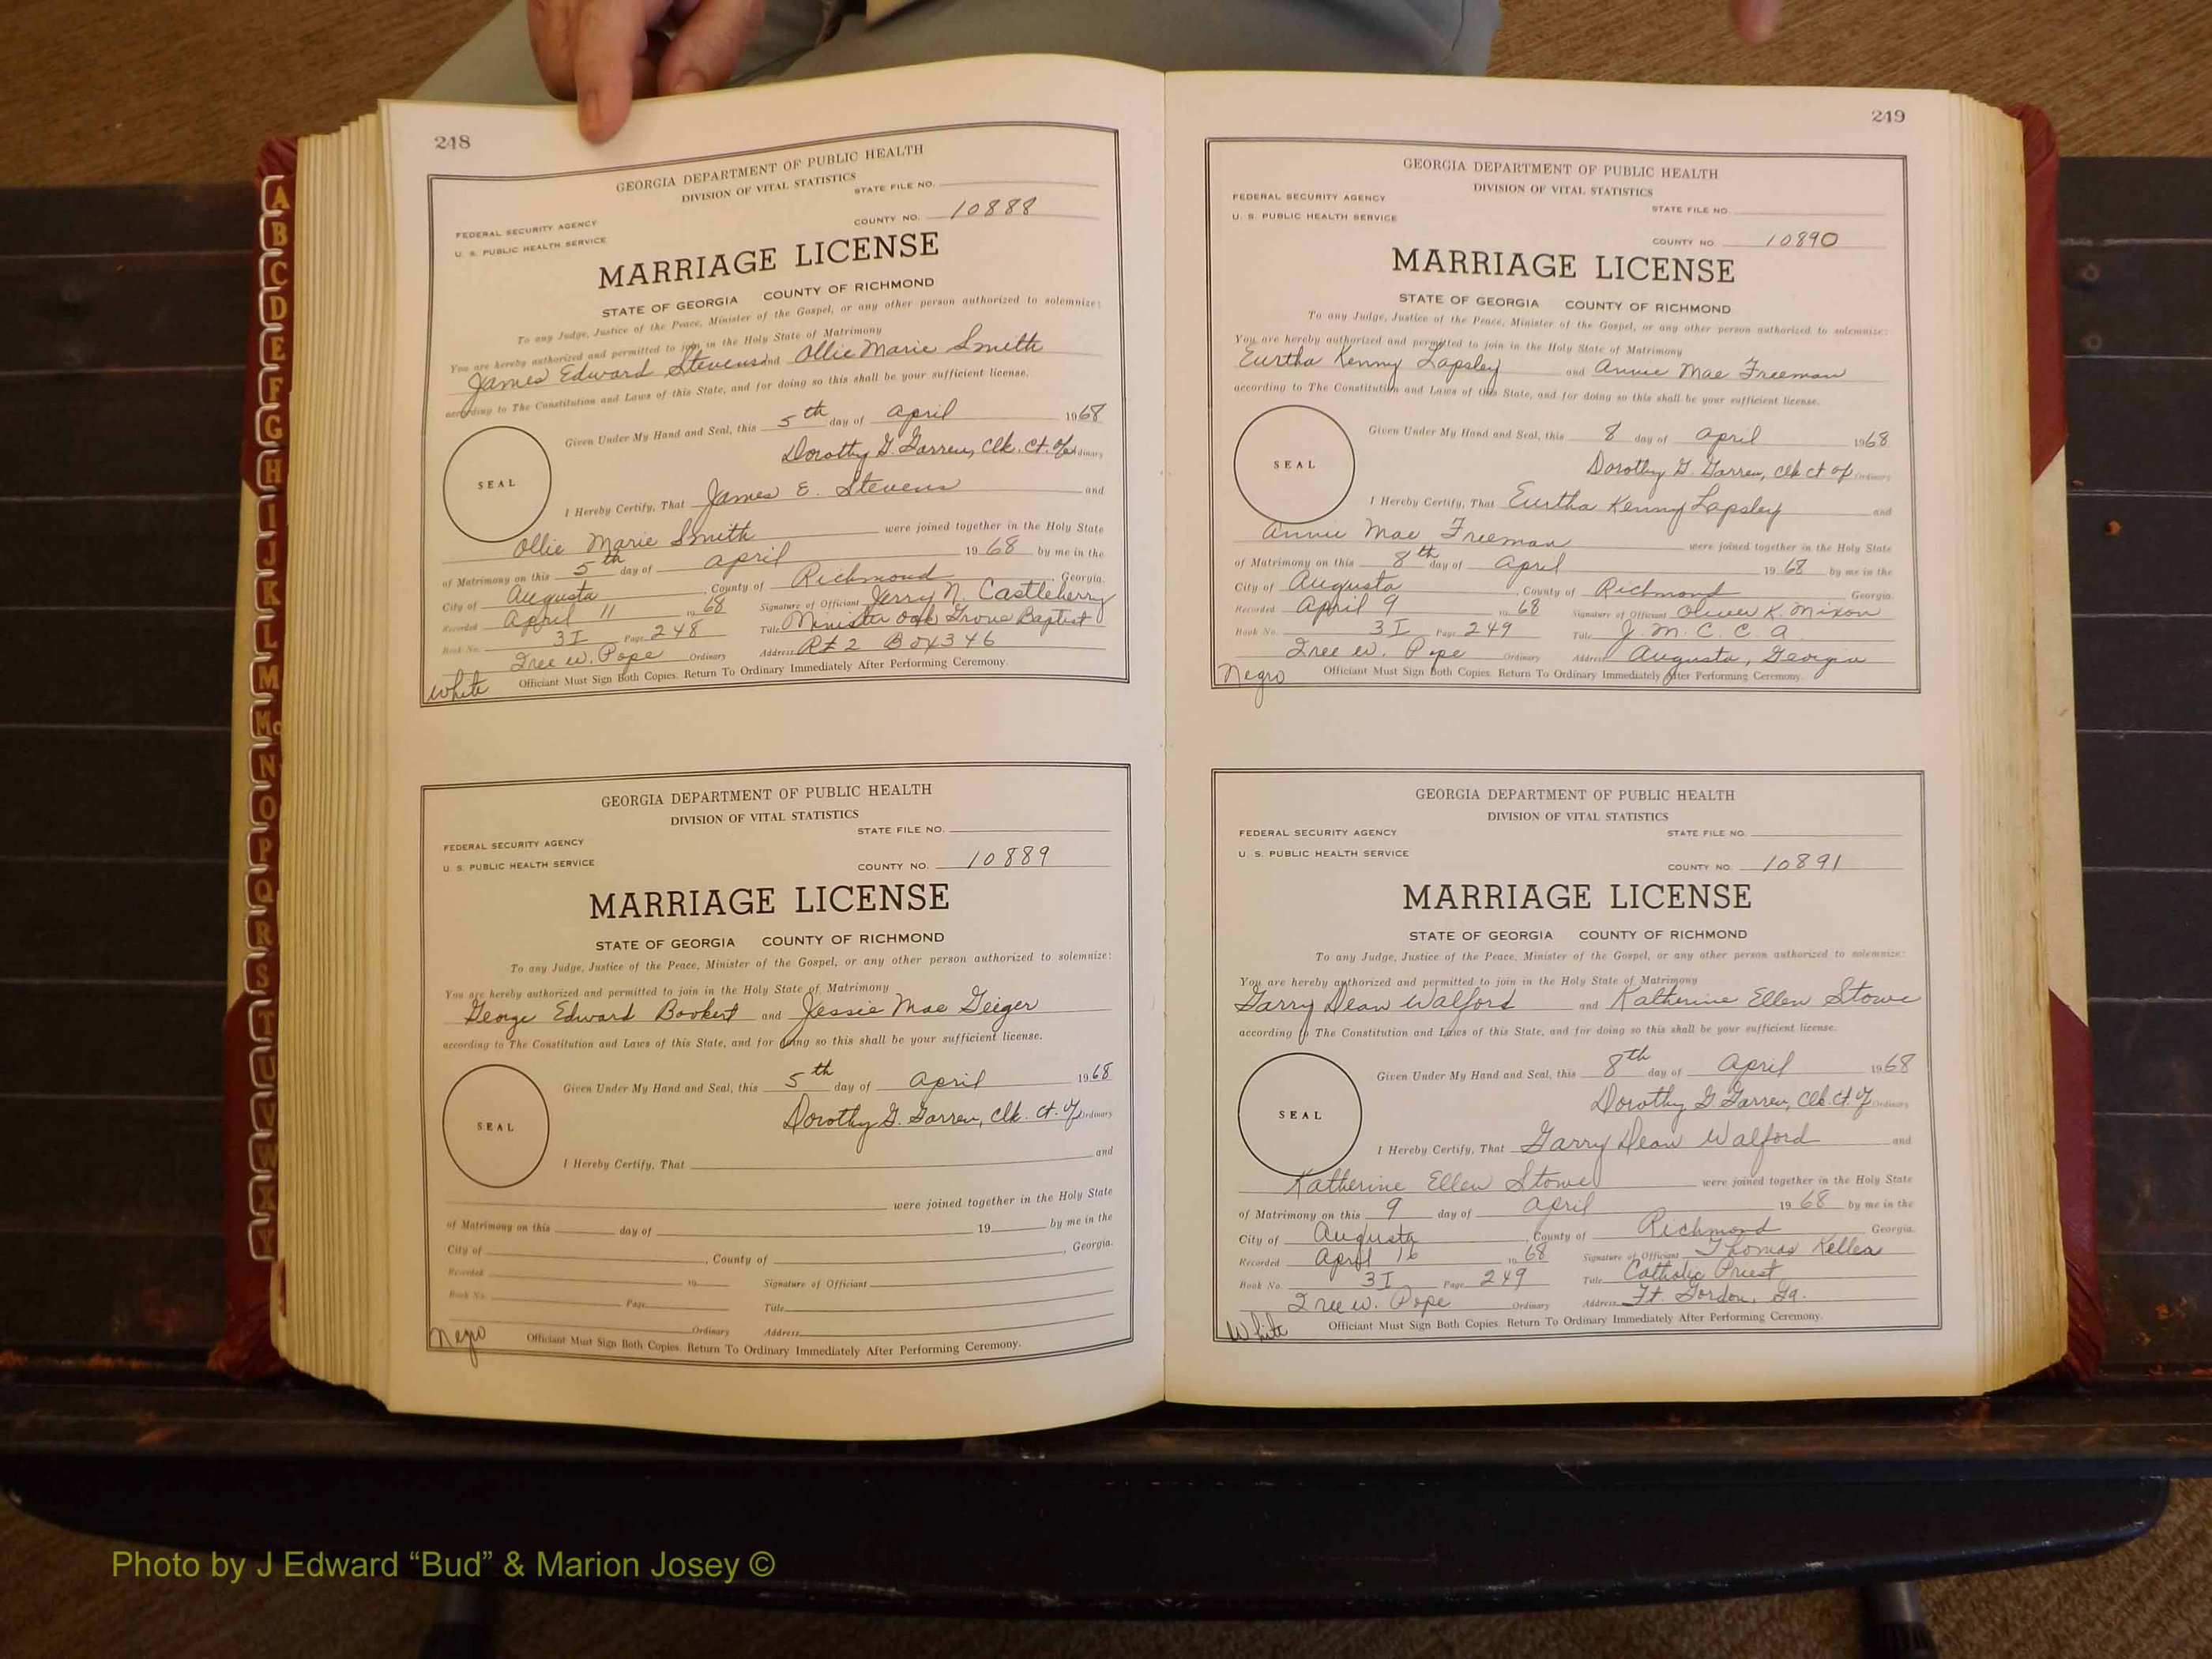 248
GEORGIA DEPARTMENT OF PUBLIC HEALTH
DIVISION OF VITAL STATISTICS
STATE FILE NO.
FEDERAL SECURITY AGENCY
U. S. PUBLIC HEALTH SERVICE
COUNTY NO. 10888
MARRIAGE LICENSE
STATE OF GEORGIA COUNTY OF RICHMOND
To any Judge, Justice of the Peace, Minister of the Gospel, or any other person authorized to solemnize:
You are hereby authorized and permitted to join in the Holy State of Matrimony
James Edward Stevens and Ollie Marie Smith
according to The Constitution and Laws of this State, and for doing so this shall be your sufficient license.
Given Under My Hand and Seal, this 5th day of April 1968
Dorothy G. Garren, Clk. Ct. of Ordinary
SEAL
I Hereby Certify, That James E. Stevens and
Ollie Marie Smith were joined together in the Holy State
of Matrimony on this 5th day of April 1968 by me in the
City of Augusta, County of Richmond, Georgia.
Recorded April 11 1968 Signature of Officiant Jerry N. Castleberry
Book No. 3I Page 248 Title Minister Oak Grove Baptist
Iree W. Pope Ordinary Address Rt 2 Box 346
White Officiant Must Sign Both Copies. Return To Ordinary Immediately After Performing Ceremony.
GEORGIA DEPARTMENT OF PUBLIC HEALTH
DIVISION OF VITAL STATISTICS
STATE FILE NO.
FEDERAL SECURITY AGENCY
U. S. PUBLIC HEALTH SERVICE
COUNTY NO. 10889
MARRIAGE LICENSE
STATE OF GEORGIA COUNTY OF RICHMOND
To any Judge, Justice of the Peace, Minister of the Gospel, or any other person authorized to solemnize:
You are hereby authorized and permitted to join in the Holy State of Matrimony
George Edward Bookert and Jessie Mae Geiger
according to The Constitution and Laws of this State, and for doing so this shall be your sufficient license.
Given Under My Hand and Seal, this 5th day of April 1968
Dorothy G. Garren, Clk. Ct. of Ordinary
SEAL
I Hereby Certify, That and
were joined together in the Holy State
of Matrimony on this day of 19 by me in the
City of , County of , Georgia.
Recorded 19 Signature of Officiant
Book No. Page Title
Ordinary Address
Negro Officiant Must Sign Both Copies. Return To Ordinary Immediately After Performing Ceremony.
249
GEORGIA DEPARTMENT OF PUBLIC HEALTH
DIVISION OF VITAL STATISTICS
FEDERAL SECURITY AGENCY
STATE FILE NO.
U. S. PUBLIC HEALTH SERVICE
COUNTY NO. 10890
MARRIAGE LICENSE
STATE OF GEORGIA COUNTY OF RICHMOND
To any Judge, Justice of the Peace, Minister of the Gospel, or any other person authorized to solemnize:
You are hereby authorized and permitted to join in the Holy State of Matrimony
Eurtha Kenny Lapsley and Annie Mae Freeman
according to The Constitution and Laws of this State, and for doing so this shall be your sufficient license.
Given Under My Hand and Seal, this 8 day of April 1968
Dorothy G. Garren, Clk Ct of Ordinary
SEAL
I Hereby Certify, That Eurtha Kenny Lapsley and
Annie Mae Freeman were joined together in the Holy State
of Matrimony on this 8th day of April 1968 by me in the
City of Augusta, County of Richmond, Georgia.
Recorded April 9 1968 Signature of Officiant Oliver K. Mixon
Book No. 3I Page 249 Title J. M. C. C. A.
Iree W. Pope Ordinary Address Augusta, Georgia
Negro Officiant Must Sign Both Copies. Return To Ordinary Immediately After Performing Ceremony.
GEORGIA DEPARTMENT OF PUBLIC HEALTH
DIVISION OF VITAL STATISTICS
FEDERAL SECURITY AGENCY
STATE FILE NO.
U. S. PUBLIC HEALTH SERVICE
COUNTY NO. 10891
MARRIAGE LICENSE
STATE OF GEORGIA COUNTY OF RICHMOND
To any Judge, Justice of the Peace, Minister of the Gospel, or any other person authorized to solemnize:
You are hereby authorized and permitted to join in the Holy State of Matrimony
Garry Dean Walford and Katherine Ellen Stowe
according to The Constitution and Laws of this State, and for doing so this shall be your sufficient license.
Given Under My Hand and Seal, this 8th day of April 1968
Dorothy G. Garren, Clk. Ct. of Ordinary
SEAL
I Hereby Certify, That Garry Dean Walford and
Katherine Ellen Stowe were joined together in the Holy State
of Matrimony on this 9 day of April 1968 by me in the
City of Augusta, County of Richmond, Georgia.
Recorded April 16 1968 Signature of Officiant Thomas
Book No. 3I Page 249 Title Catholic Priest
Iree W. Pope Ordinary Address Ft. Gordon, Ga.
White Officiant Must Sign Both Copies. Return To Ordinary Immediately After Performing Ceremony.
A
B
C
D
E
F
G
H
I
J
K
L
M
Mc
N
O
P
Q
R
S
T
U
V
W
X
Y
Photo by J Edward “Bud” & Marion Josey ©